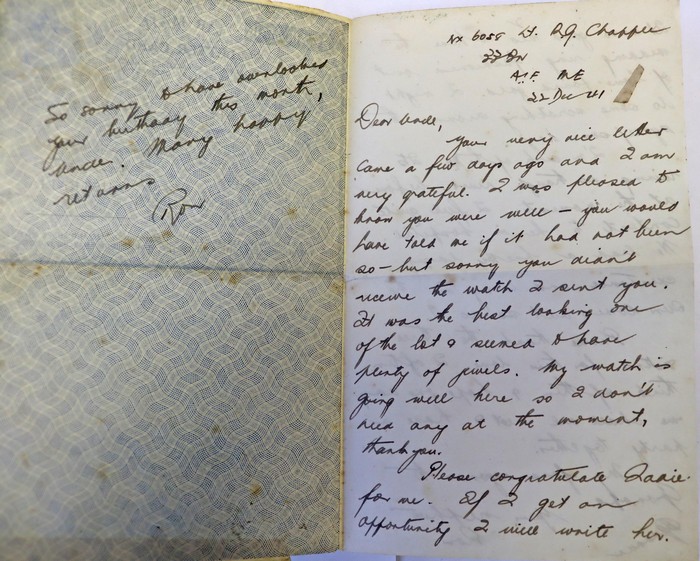 So sorry to have overlooked
your birthday this month,
Uncle. Many happy
returns
Ron
NX 6058 Lt. R.G. Chapple
A.I.F. M.E
22 Dec 41
Dear Uncle,
your very nice letter
came a few days ago and I am
very grateful. I was pleased to
know you were well – you would
have told me if it had not been
so – but sorry you didn't
receive the watch I sent you.
It was the best looking one
of the lot & seemed to have
plenty of jewels. My watch is
going well here so I don't
need any at the moment,
thank you.
Please congratulate
for me. If I get an
opportunity I will write her.